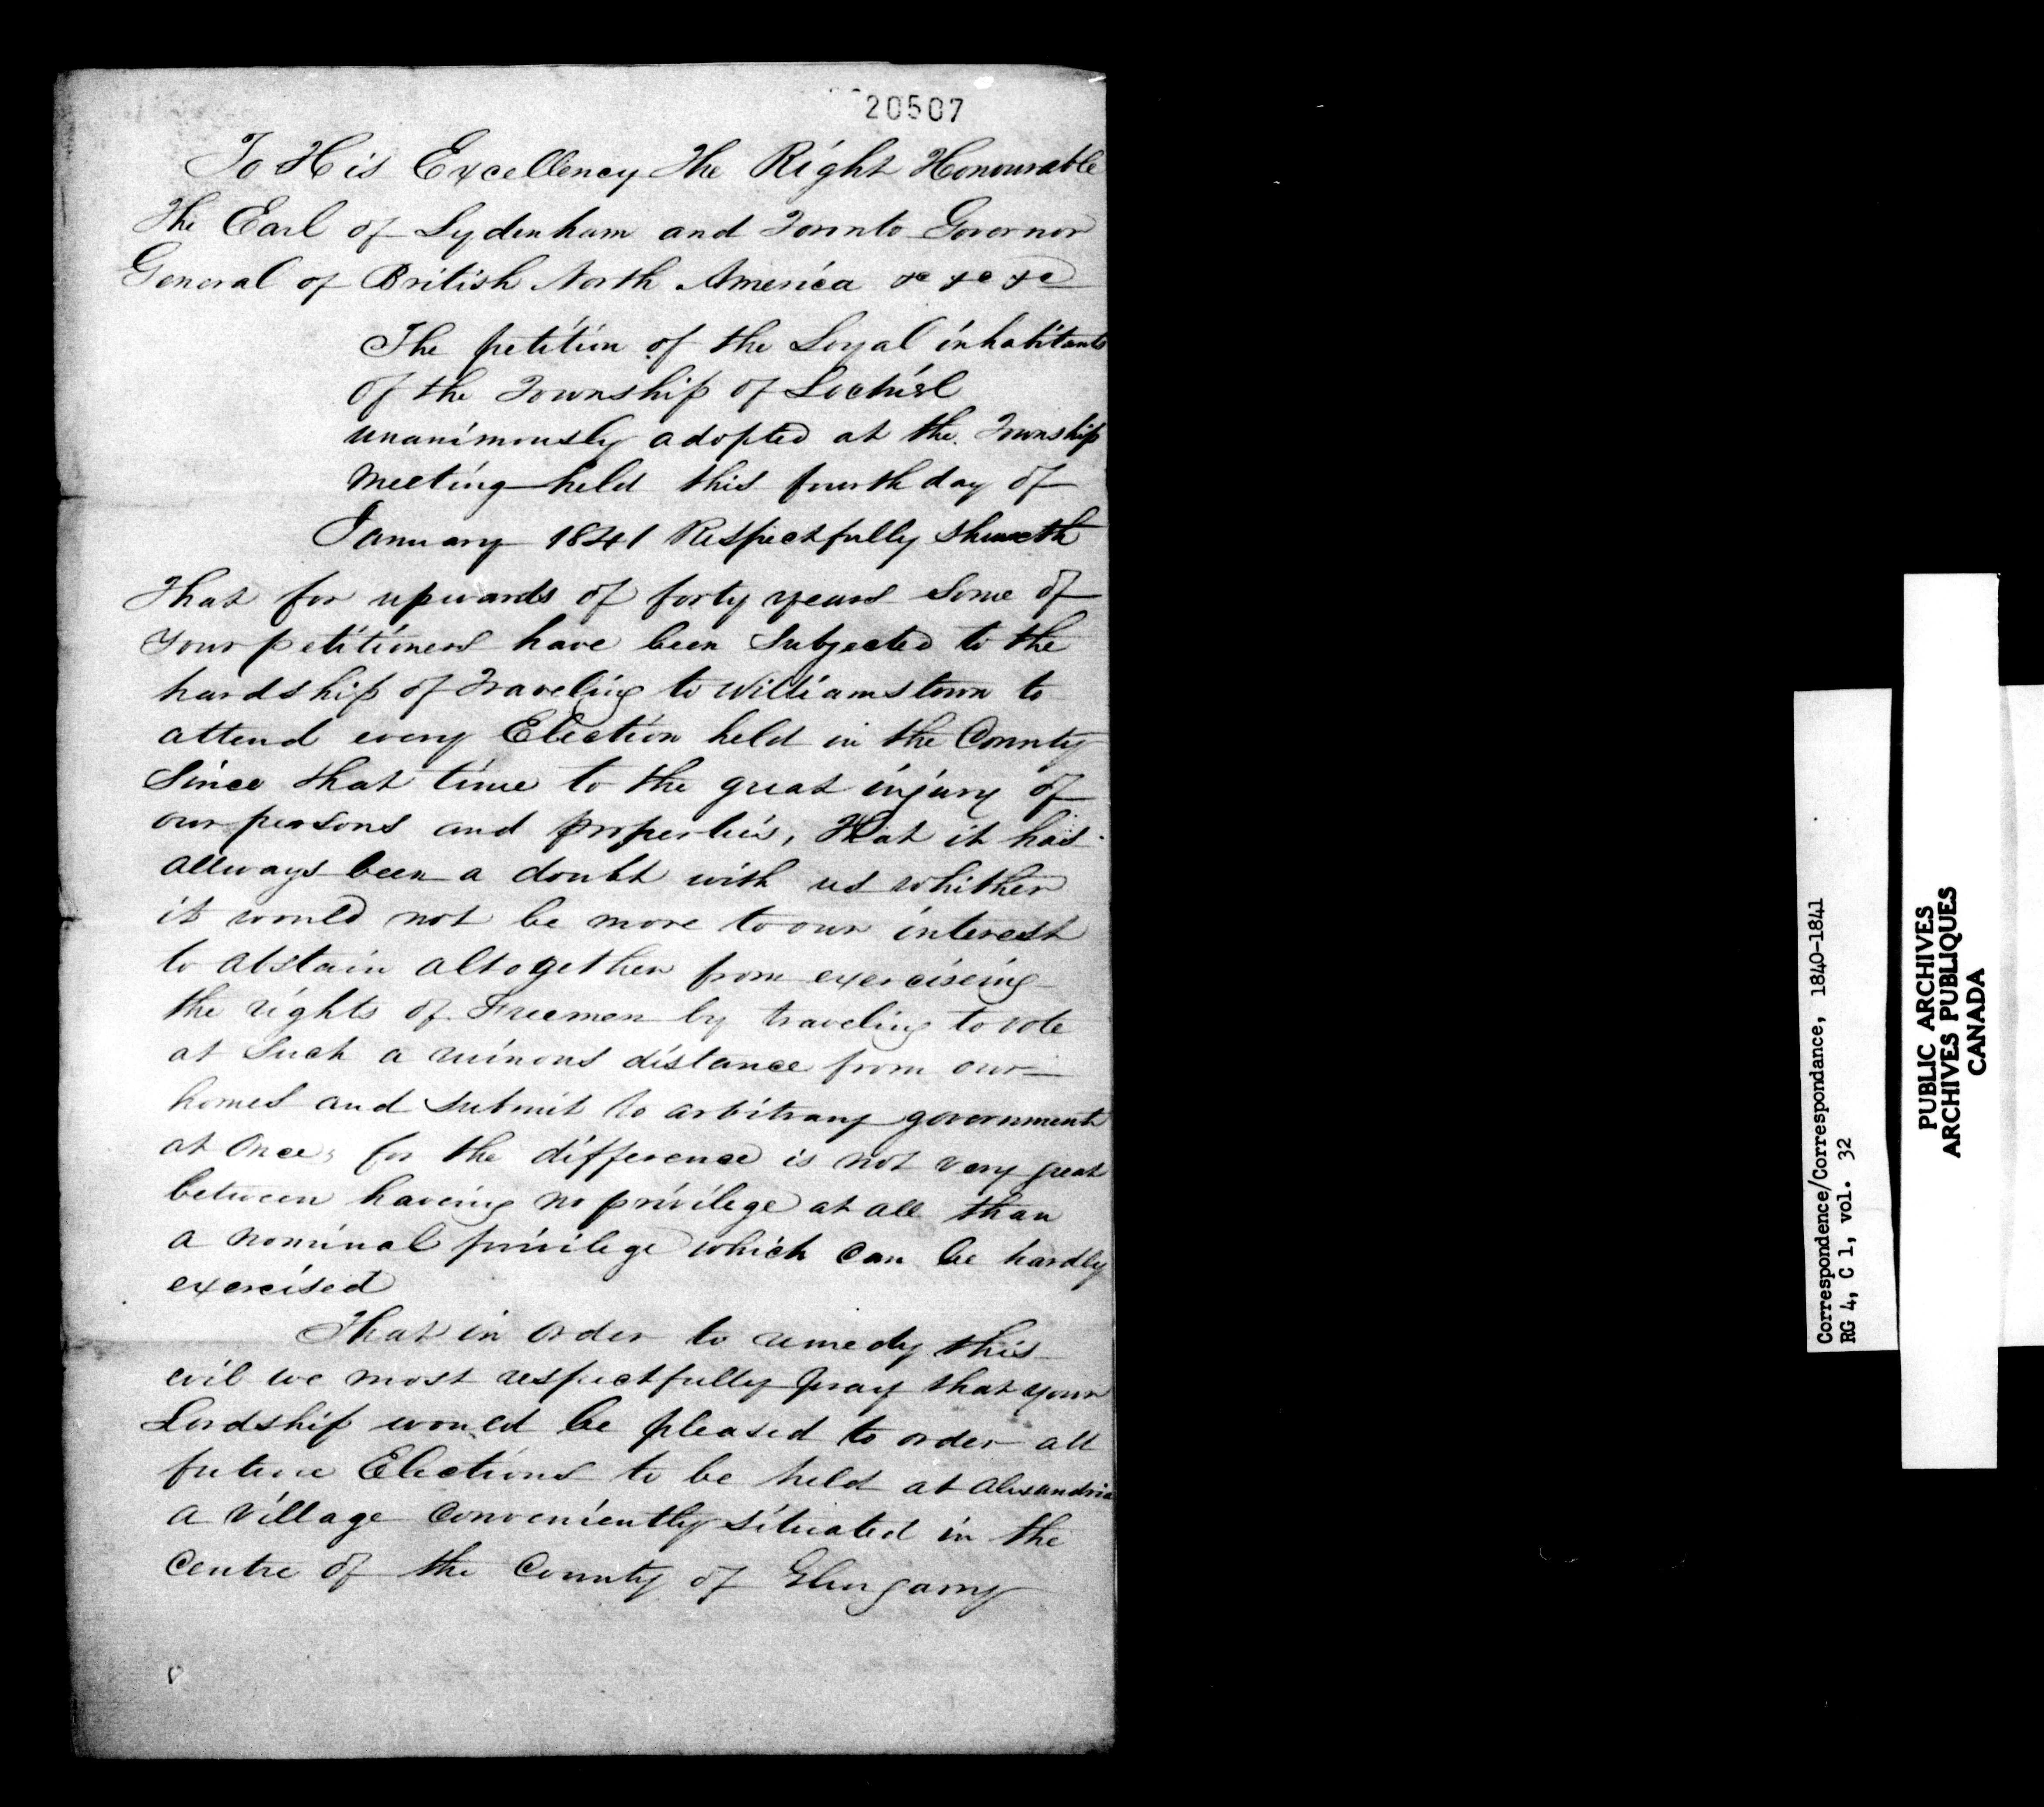 20507
To His Excellency The Right Honourable
The Earl of Sydenham and Toronto Governor
General of British North America &c &c &c
The petition of the Loyal inhabitants
Of the Township of Lochiel
unanimously adopted at the Township
Meeting held this fourth day of
January 1841 Respectfully Sheweth
That for upwards of forty years Some of
Your petitioners have been Subjected to the
hardship of Traveling to Williamstown to
attend every Election held in the County
Since that time to the great injury of
our persons and properties, That it has
allways been a doubt with us whither
it would not be more to our interest
to abstain altogether from exerciseing
the rights of Freemen by traveling to vote
at Such a ruinous distance from our
homes and Submit to arbitrary government
at Once, for the difference is not very great
between haveing no privilege at all than
a nominal privilege which can be hardly
exercised
That in Order to remedy this
evil we most respectfully pray that your
Lordship would be pleased to order all
future Elections to be held at Alexandria
a Village Conveniently Situated in the
Centre of the County of Glengarry
Correspondence/Correspondance, 1840-1841
RG 4, C 1, vol. 32
PUBLIC ARCHIVES
ARCHIVES PUBLIQUES
CANADA